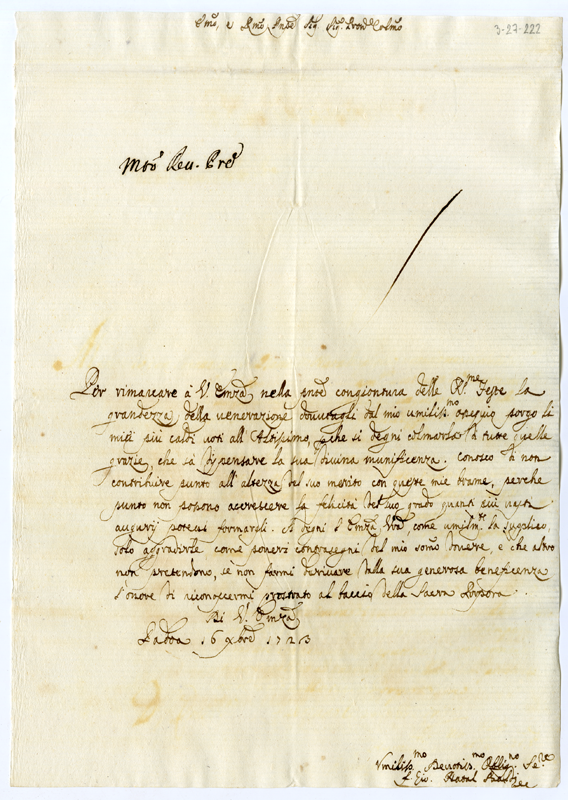 Emo, e Rmo Pnpe Sig. Sig. Prone Colmo
3-27-222
Mto Reu. Pre
Per rimarcare à V. Emza nella pnte congiontura delle Sme Feste la
grandezza della venerazione douutagli dal mio umilissmo ossequio porgo li
miei più caldi uoti all'Altissimo, che si degni colmarla di tutte quelle
grazie, che sà dispensare la sua diuina munificenza. Conosco di non
contribuire punto all'altezza del suo merito con queste mie brame, perche
punto non possono accrescere la felicità del suo grado quanti più uasti
augurij potessi formargli. Si degni l'Emza Vra, come umilmte la supplico,
solo aggradirle come poueri contrasegni del mio sommo douere, e che altro
non pretendono, se non farmi deriuare dalla sua generosa beneficenza
l'onore di riconoscermi prostrato al baccio della Sacra Porpora.
Di V. Emza
Padoa 16 Xbre 1723
Vmiliss.mo Deuotiss.mo Obblig.no Se.re
F. Gio.